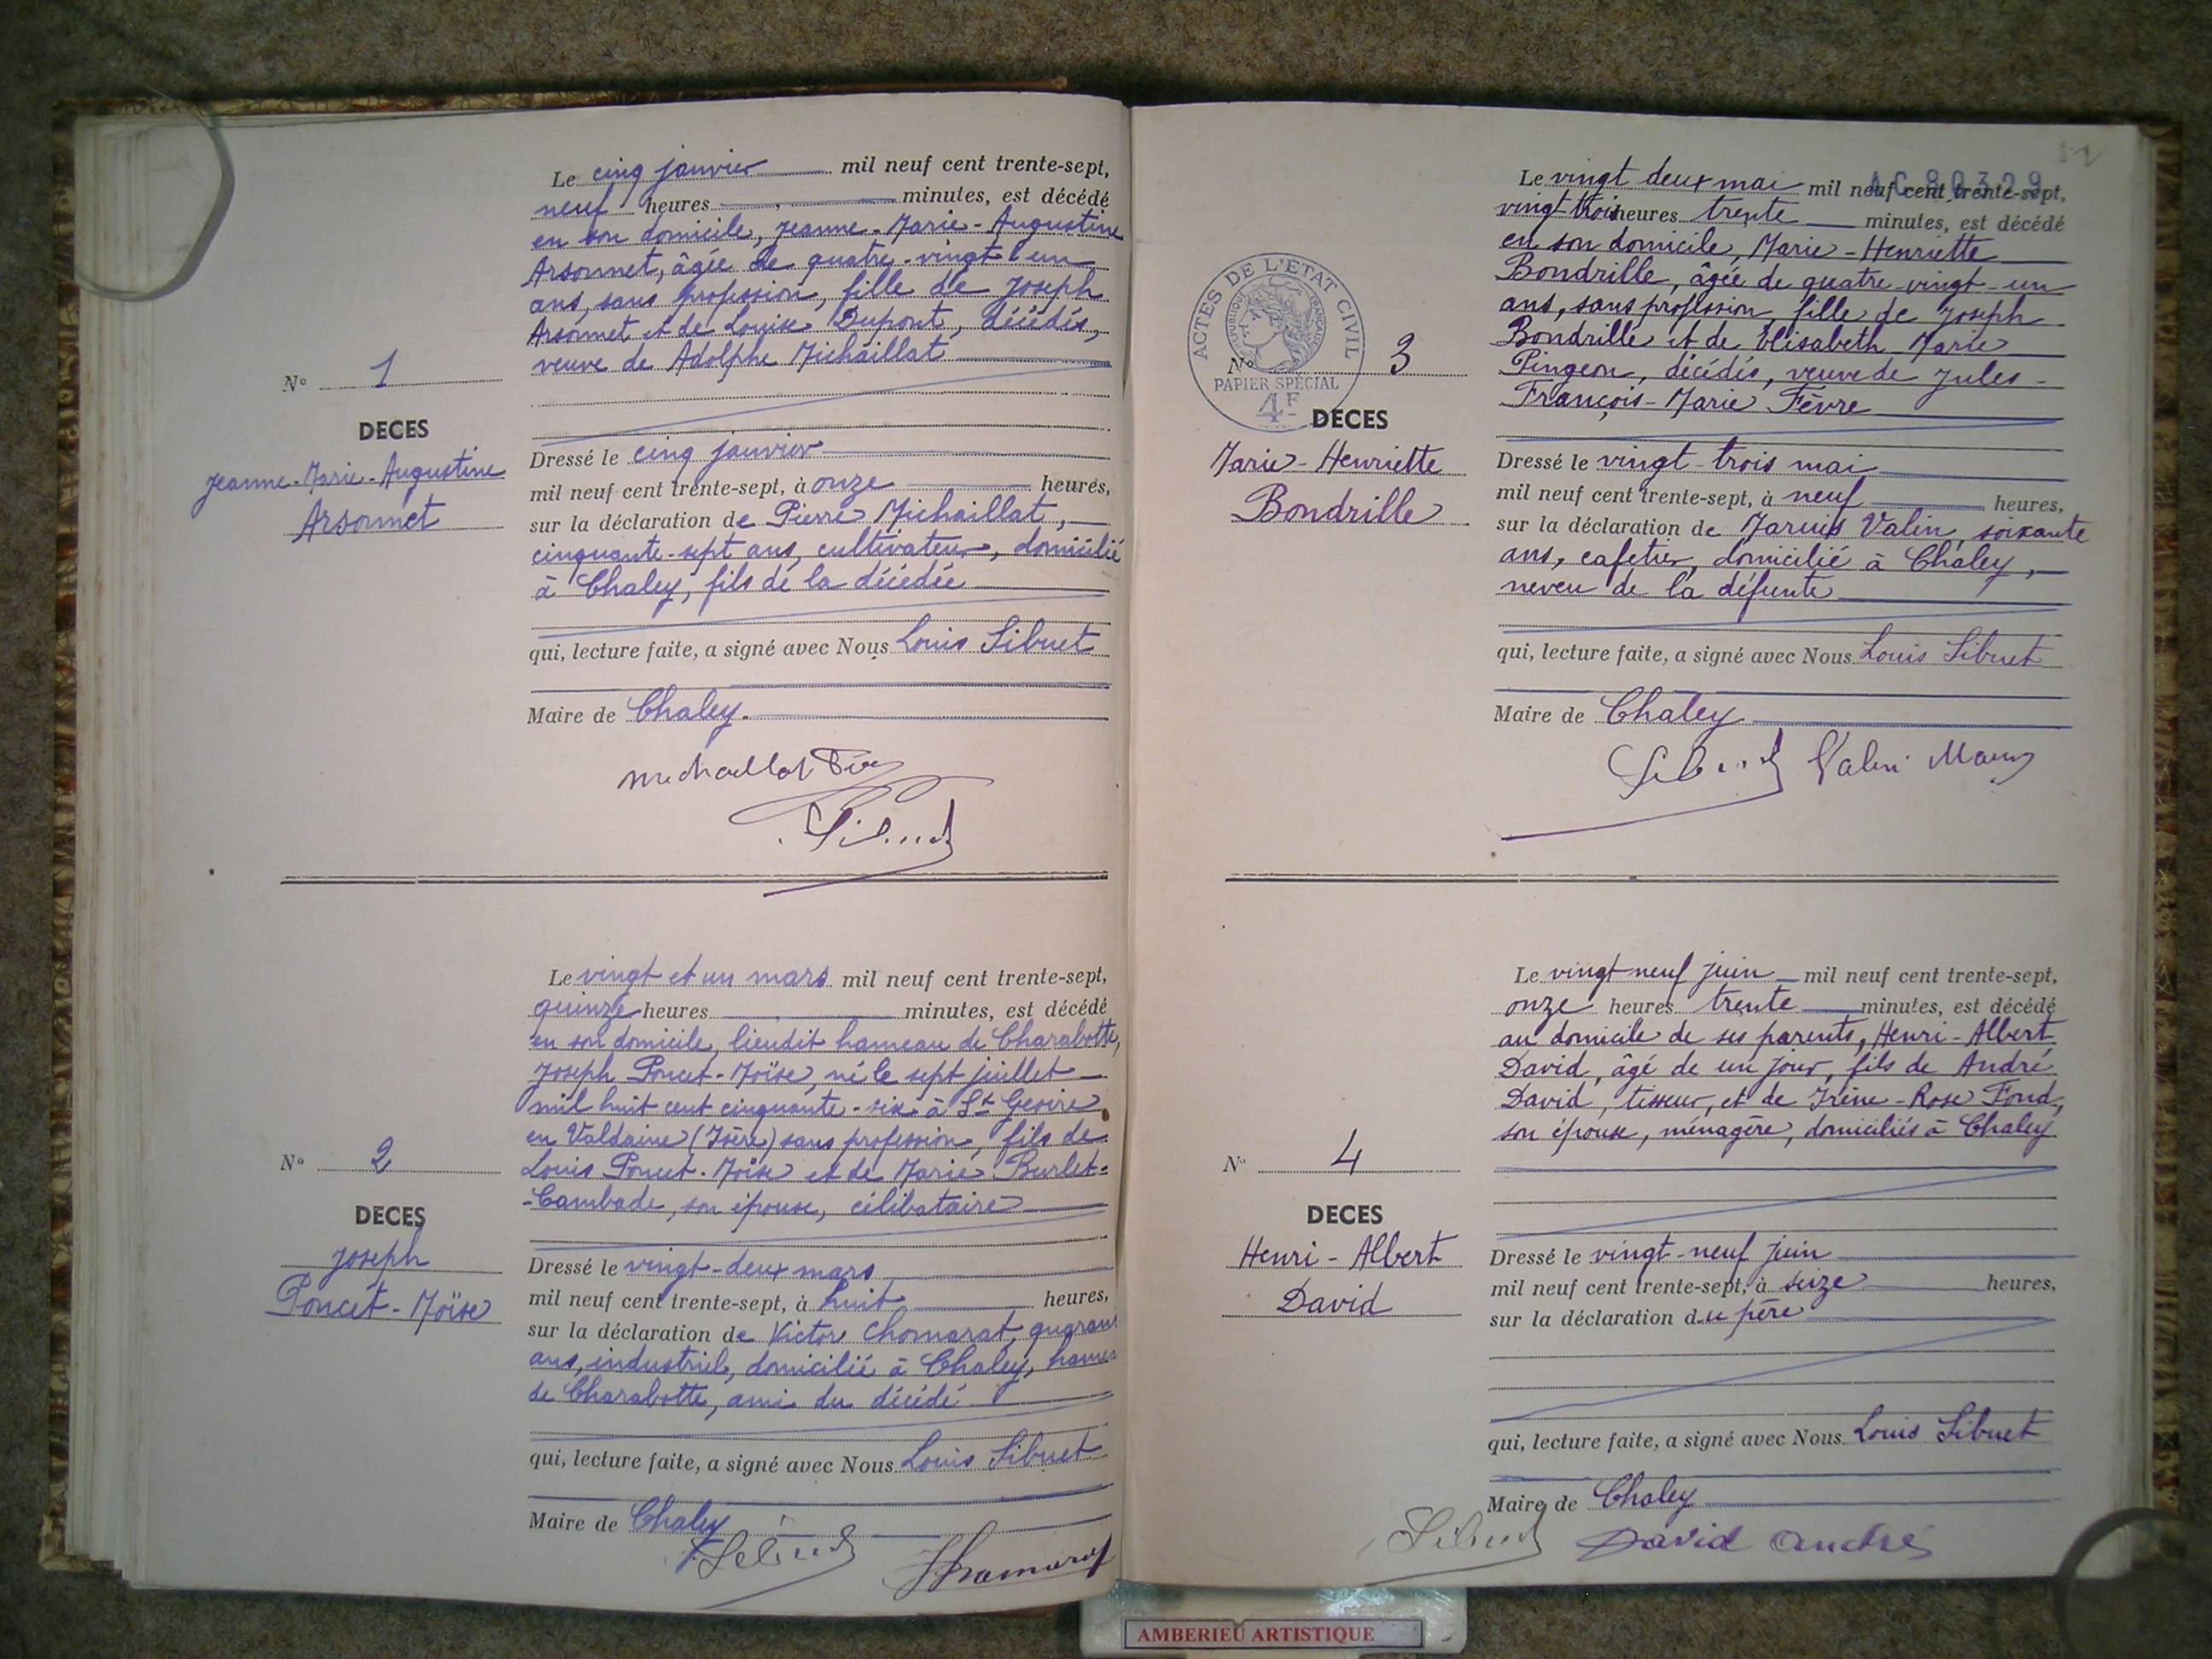 Le cinq janvier mil neuf cent trente-sept,
neuf heures minutes, est décédé
en son domicile, Jeanne-Marie-Augustine
Arsonnet, âgée de quatre-vingt un
ans, sans profession, fille de Joseph
Arsonnet et de Louise Dupont, décédés,
veuve de Adolphe Michaillat
N° 1
DECES
Jeanne-Marie-Augustine
Arsonnet
Dressé le cinq janvier
mil neuf cent trente-sept, à onze heures,
sur la déclaration de Pierre Michaillat,
cinquante-sept ans, cultivateur, domicilié
à Chaley, fils de la décédée
qui, lecture faite, a signé avec Nous Louis Sibuet
Maire de Chaley.
Michaillat
Sibuet
Le vingt et un mars mil neuf cent trente-sept,
quinze heures minutes, est décédé
en son domicile, lieudit hameau de Charabotte,
Joseph Poncet-Moïse, né le sept juillet
mil huit cent cinquante-six à St Geoire
en Valdaine (Isère) sans profession, fils de
Louis Poncet-Moïse et de Marie Burlet-
-Cambade, son épouse, célibataire
N° 2
DECES
Joseph
Poncet-Moïse
Dressé le vingt-deux mars
mil neuf cent trente-sept, à huit heures,
sur la déclaration de Victor Chomarat,
ans, industriel, domicilié à Chaley,
de Charabotte, ami du décédé
qui, lecture faite, a signé avec Nous Louis Sibuet
Maire de Chaley
Sibuet
AC 80329
Le vingt deux mai mil neuf cent trente-sept,
vingt trois heures trente minutes, est décédé
en son domicile, Marie-Henriette
Bondrille, âgée de quatre-vingt-un
ans, sans profession, fille de Joseph
Bondrille et de Elisabeth Marie
Pingeon, décédés, veuve de Jules-
François-Marie Fèvre
ACTES DE L'ETAT CIVIL
REPUBLIQUE FRANÇAISE
PAPIER SPECIAL
4F
N° 3
DECES
Marie-Henriette
Bondrille
Dressé le vingt-trois mai
mil neuf cent trente-sept, à neuf heures,
sur la déclaration de Marius Valin, soixante
ans, cafetier, domicilié à Chaley,
neveu de la défunte
qui, lecture faite, a signé avec Nous Louis Sibuet
Maire de Chaley
Sibuet Valin
Le vingt-neuf juin mil neuf cent trente-sept,
onze heures trente minutes, est décédé
au domicile de ses parents, Henri-Albert
David, âgé de un jour, fils de André
David, tisseur, et de Irène-Rose Fond,
son épouse, ménagère, domiciliés à Chaley
N° 4
DECES
Henri-Albert
David
Dressé le vingt-neuf juin
mil neuf cent trente-sept, à seize heures,
sur la déclaration du père
qui, lecture faite, a signé avec Nous Louis Sibuet
Maire de Chaley
Sibuet David André
AMBERIEU ARTISTIQUE